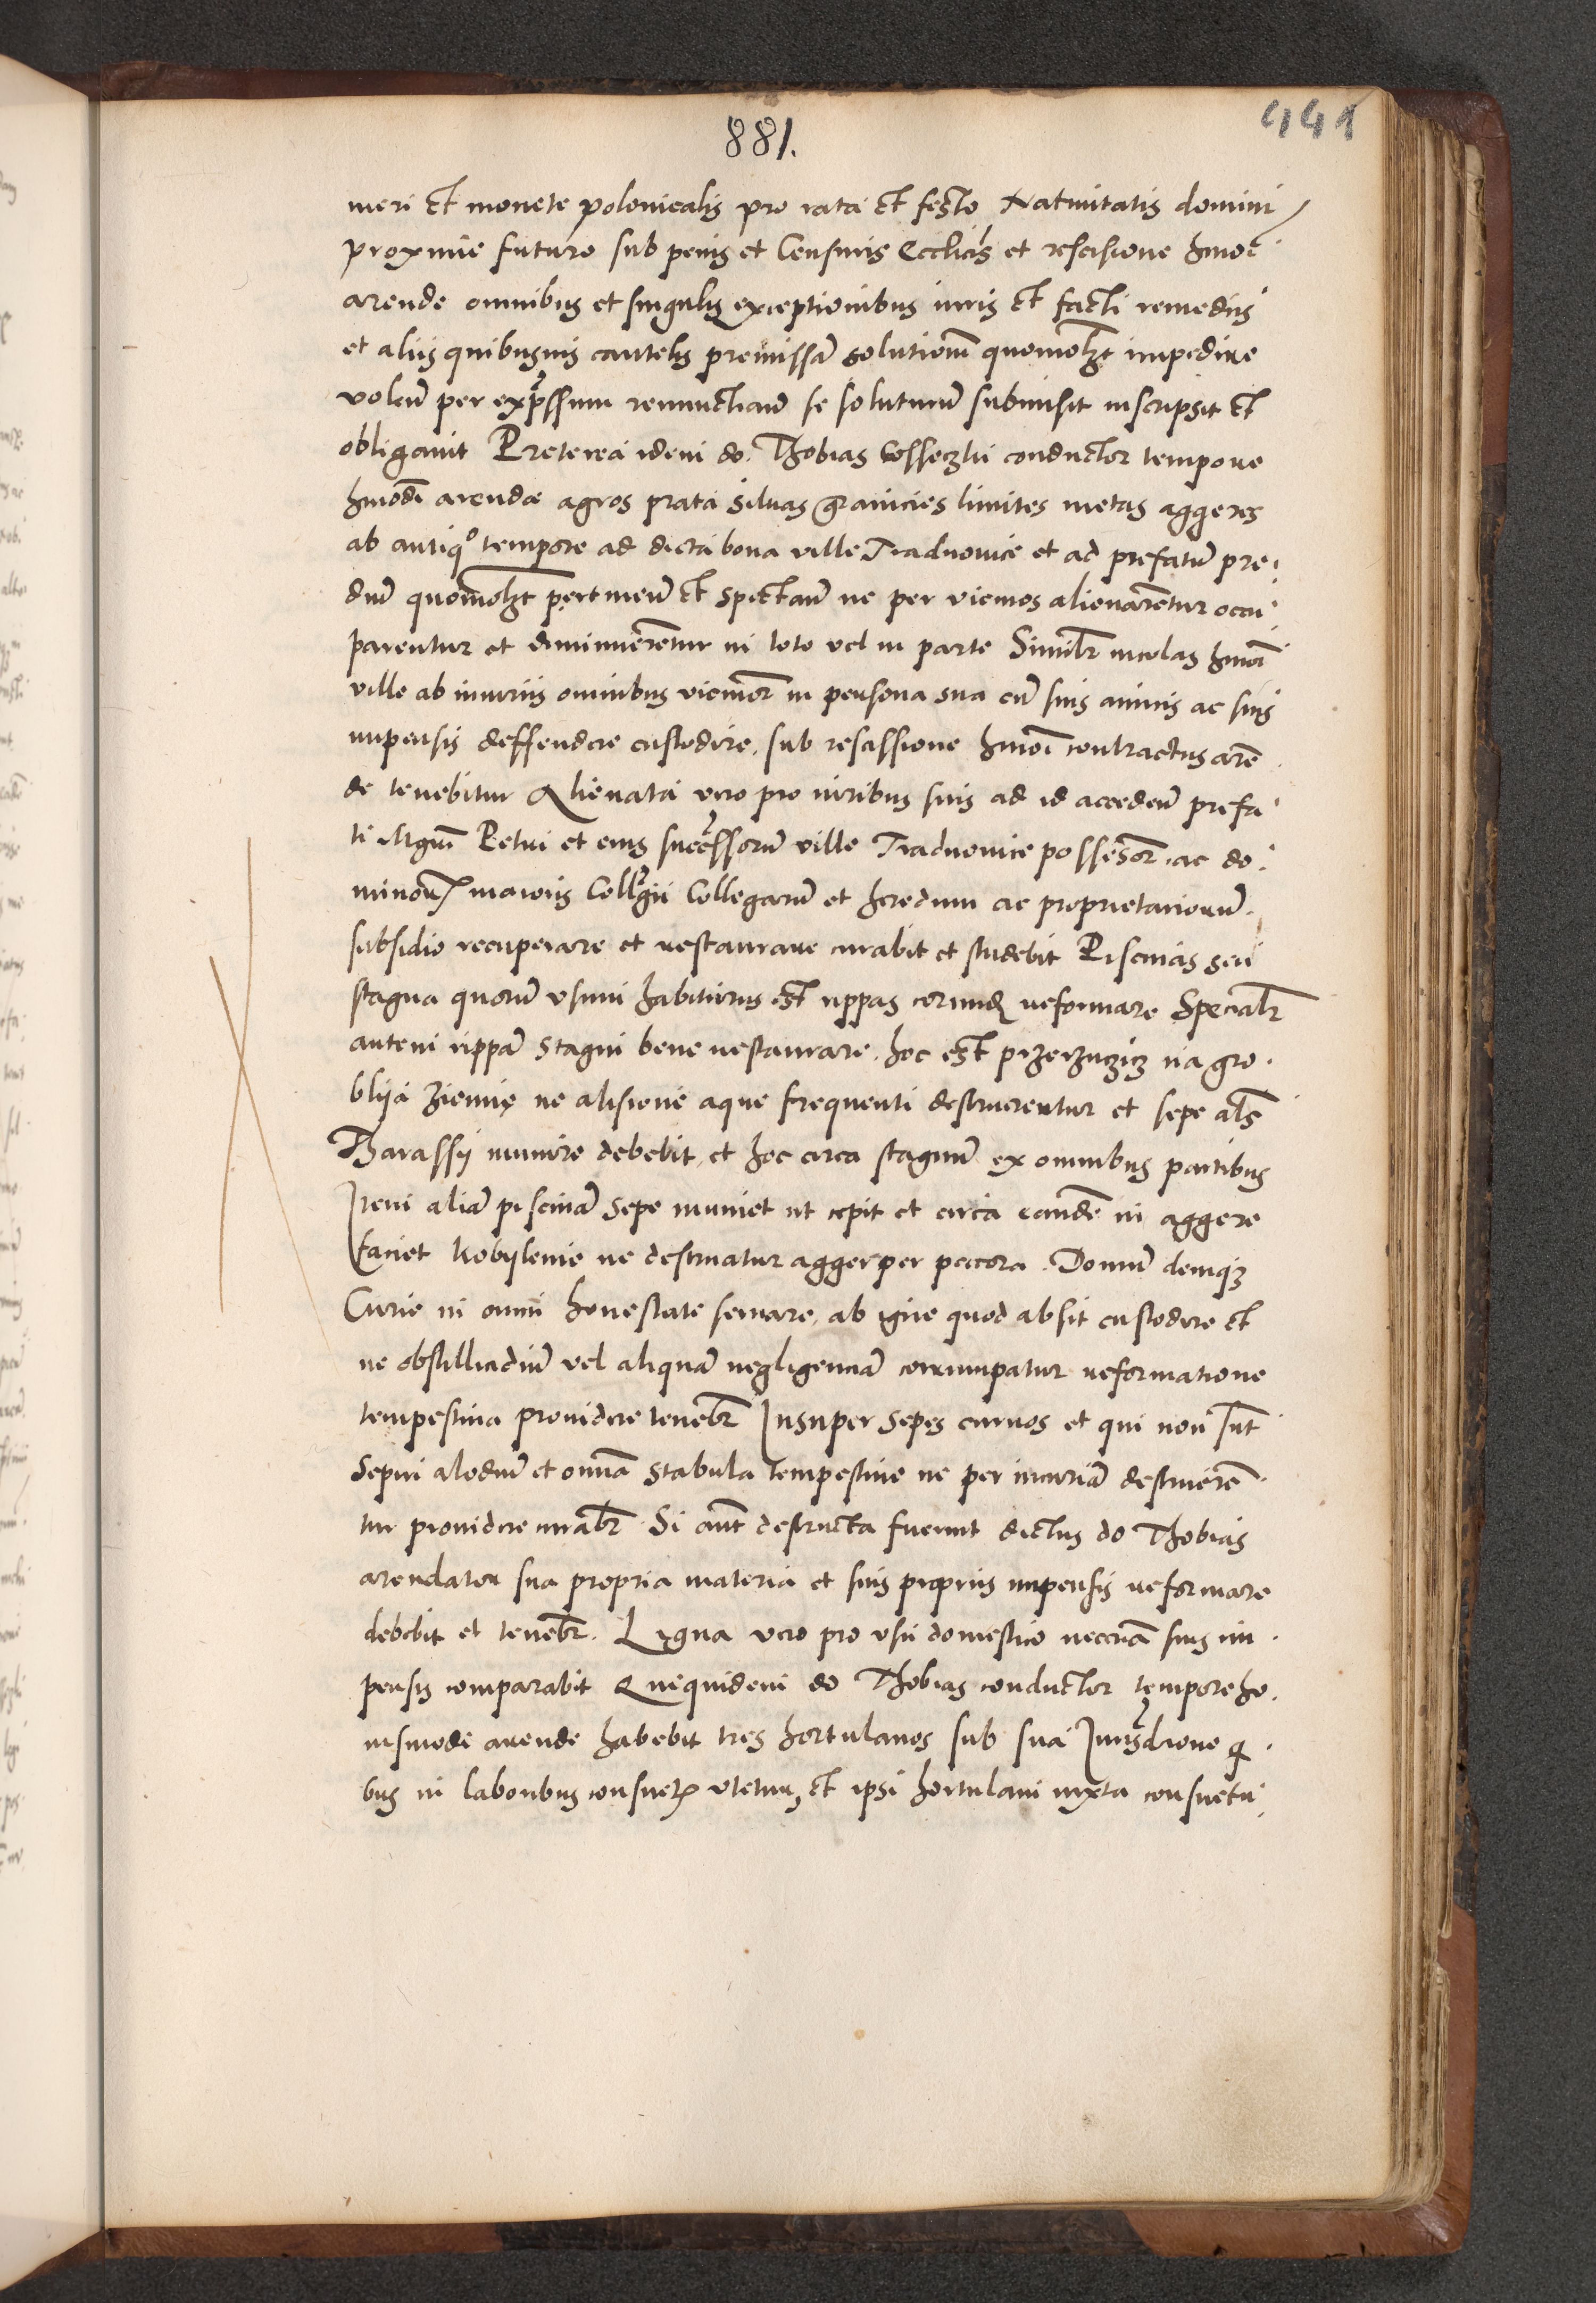 881.
441
meri et monete polonicalis pro rata et festo Nativitatis domini
proxime futuro sub penis et Censuris Ecclicis et rescisione hmoi
arende omnibus et singulis exceptionibus iuris et facti remediis
et aliis quibusuis cautelis premissã solutionẽ quomolzt impedire
volen̄ per expssum renunctian̄ se soluturũ submisit inscripsit et
obligauit Preterea idem do. Thobias conductor tempore
hmodi arendae agros prata siluas granicies limites metas aggeres
ab antiqo tempore ad dicta bona ville Tradnovice et ad prefatũ pre
diũ quomolzt pertinen̄ et spectan̄ ne per vicinos alienarentur occu
parentur et diminuerentur in toto vel in parte Similr incolas hmoi
ville ab iniuriis omnibus vicinor in persona sua cũ suis amicis ac suis
impensis deffendere custodire, sub rescissione hmoi contractus arẽ
de tenebitur Alienata vero pro viribus suis ad id acceden̄ prefa
ti Mgri Petri et eius successorũ ville Tradnovice possessor. ac do
minoꝝ maioris Collegii Collegarũ et heredum ac proprietariorum.
subsidio recuperare et restaurare curabit et studebit Piscinas seu
stagna quorũ usum habiturus est rippas eorund reformare Specialr
autem rippã stagni bene restaurare. hoc est przerzuczicz na gro
bliia ziemię ne alisione aque frequenti destruerentur et sepe als
Tharassij munire debebit, et hoc circa stagnũ ex omnibus partibus
Item aliã piscinã sepe muniet ut cepit et circa eandẽ in aggere
faciet kobylenie ne destruatur agger per peccora. Domũ deniqz
Curie in omni honestate seruare, ab igne quod absit custodire et
ne obstillicidiũ vel aliquã negligenciã corrumpatur reformatione
tempestiua prouidere tenebr Insuper sepes curuos et qui non sut
Sepiri alodiũ et omnia stabula tempestiue ne per incuriã destruerẽ
tur prouidere curabr Si aut destructa fuerint dictus do Thobias
arendator sua propria materia et suis propriis impensis reformare
debebit et tenebr. Ligna vero pro usu domestico necceriã suis im
pensis comparabit Quiquidem do Thobias conductor tempore ho
iusmodi arende habebit tres hortulanos sub sua Iurisdcione q
bus in laboribus consuetꝭ utetur, et ipsi hortulani iuxta consuetu